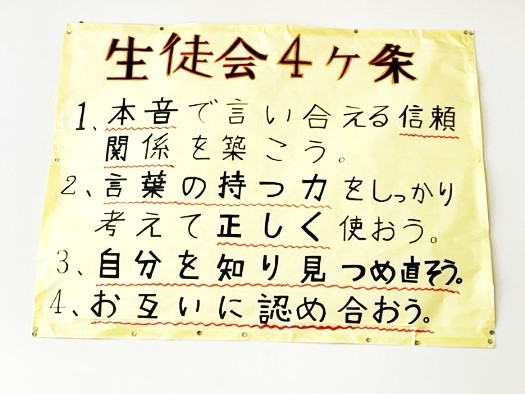 生徒会4ヶ条
1、本音で言い合える信頼
関係を築こう。
2、言葉の持つ力をしっかり
考えて正しく使おう。
3、自分を知り見つめ直そう。
4、お互いに認め合おう。